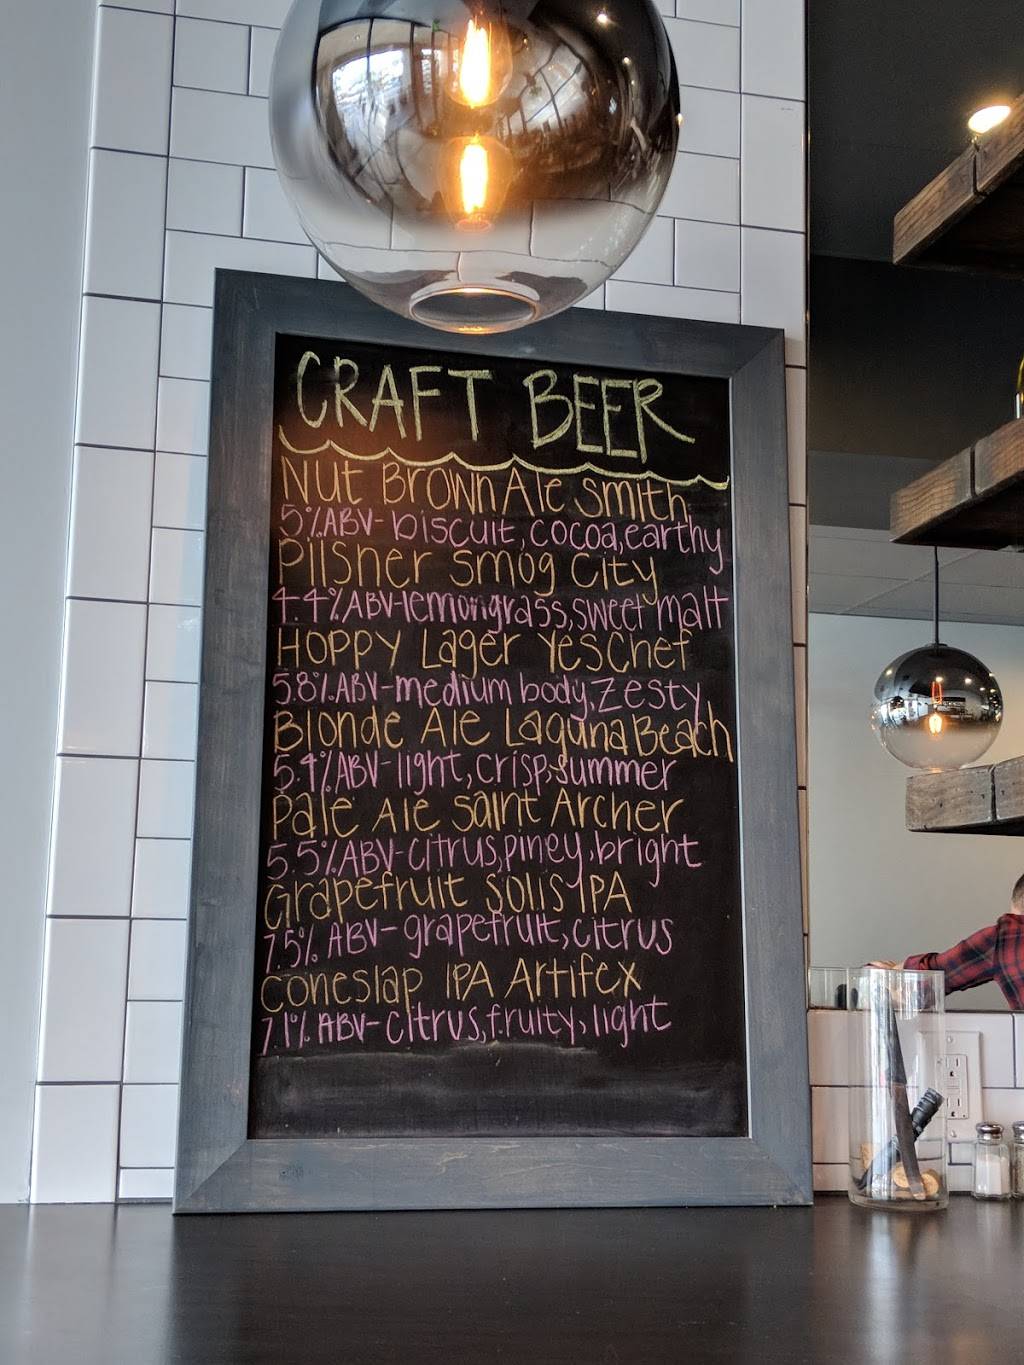 CRAFT BEER
Nut Brown Ale Smith
5% ABV- biscuit, cocoa, earthy
Pilsner Smog City
4.4% ABV-lemongrass, sweet malt
Hoppy Lager Yes Chef
5.8% ABV-medium body, zesty
Blonde Ale Laguna Beach
5.4% ABV-light, crisp, summer
Pale Ale Saint Archer
5.5% ABV-citrus, piney, bright
Grapefruit Solis IPA
7.5% ABV- grapefruit, citrus
Coneslap IPA Artifex
7.1% ABV- citrus, fruity, light